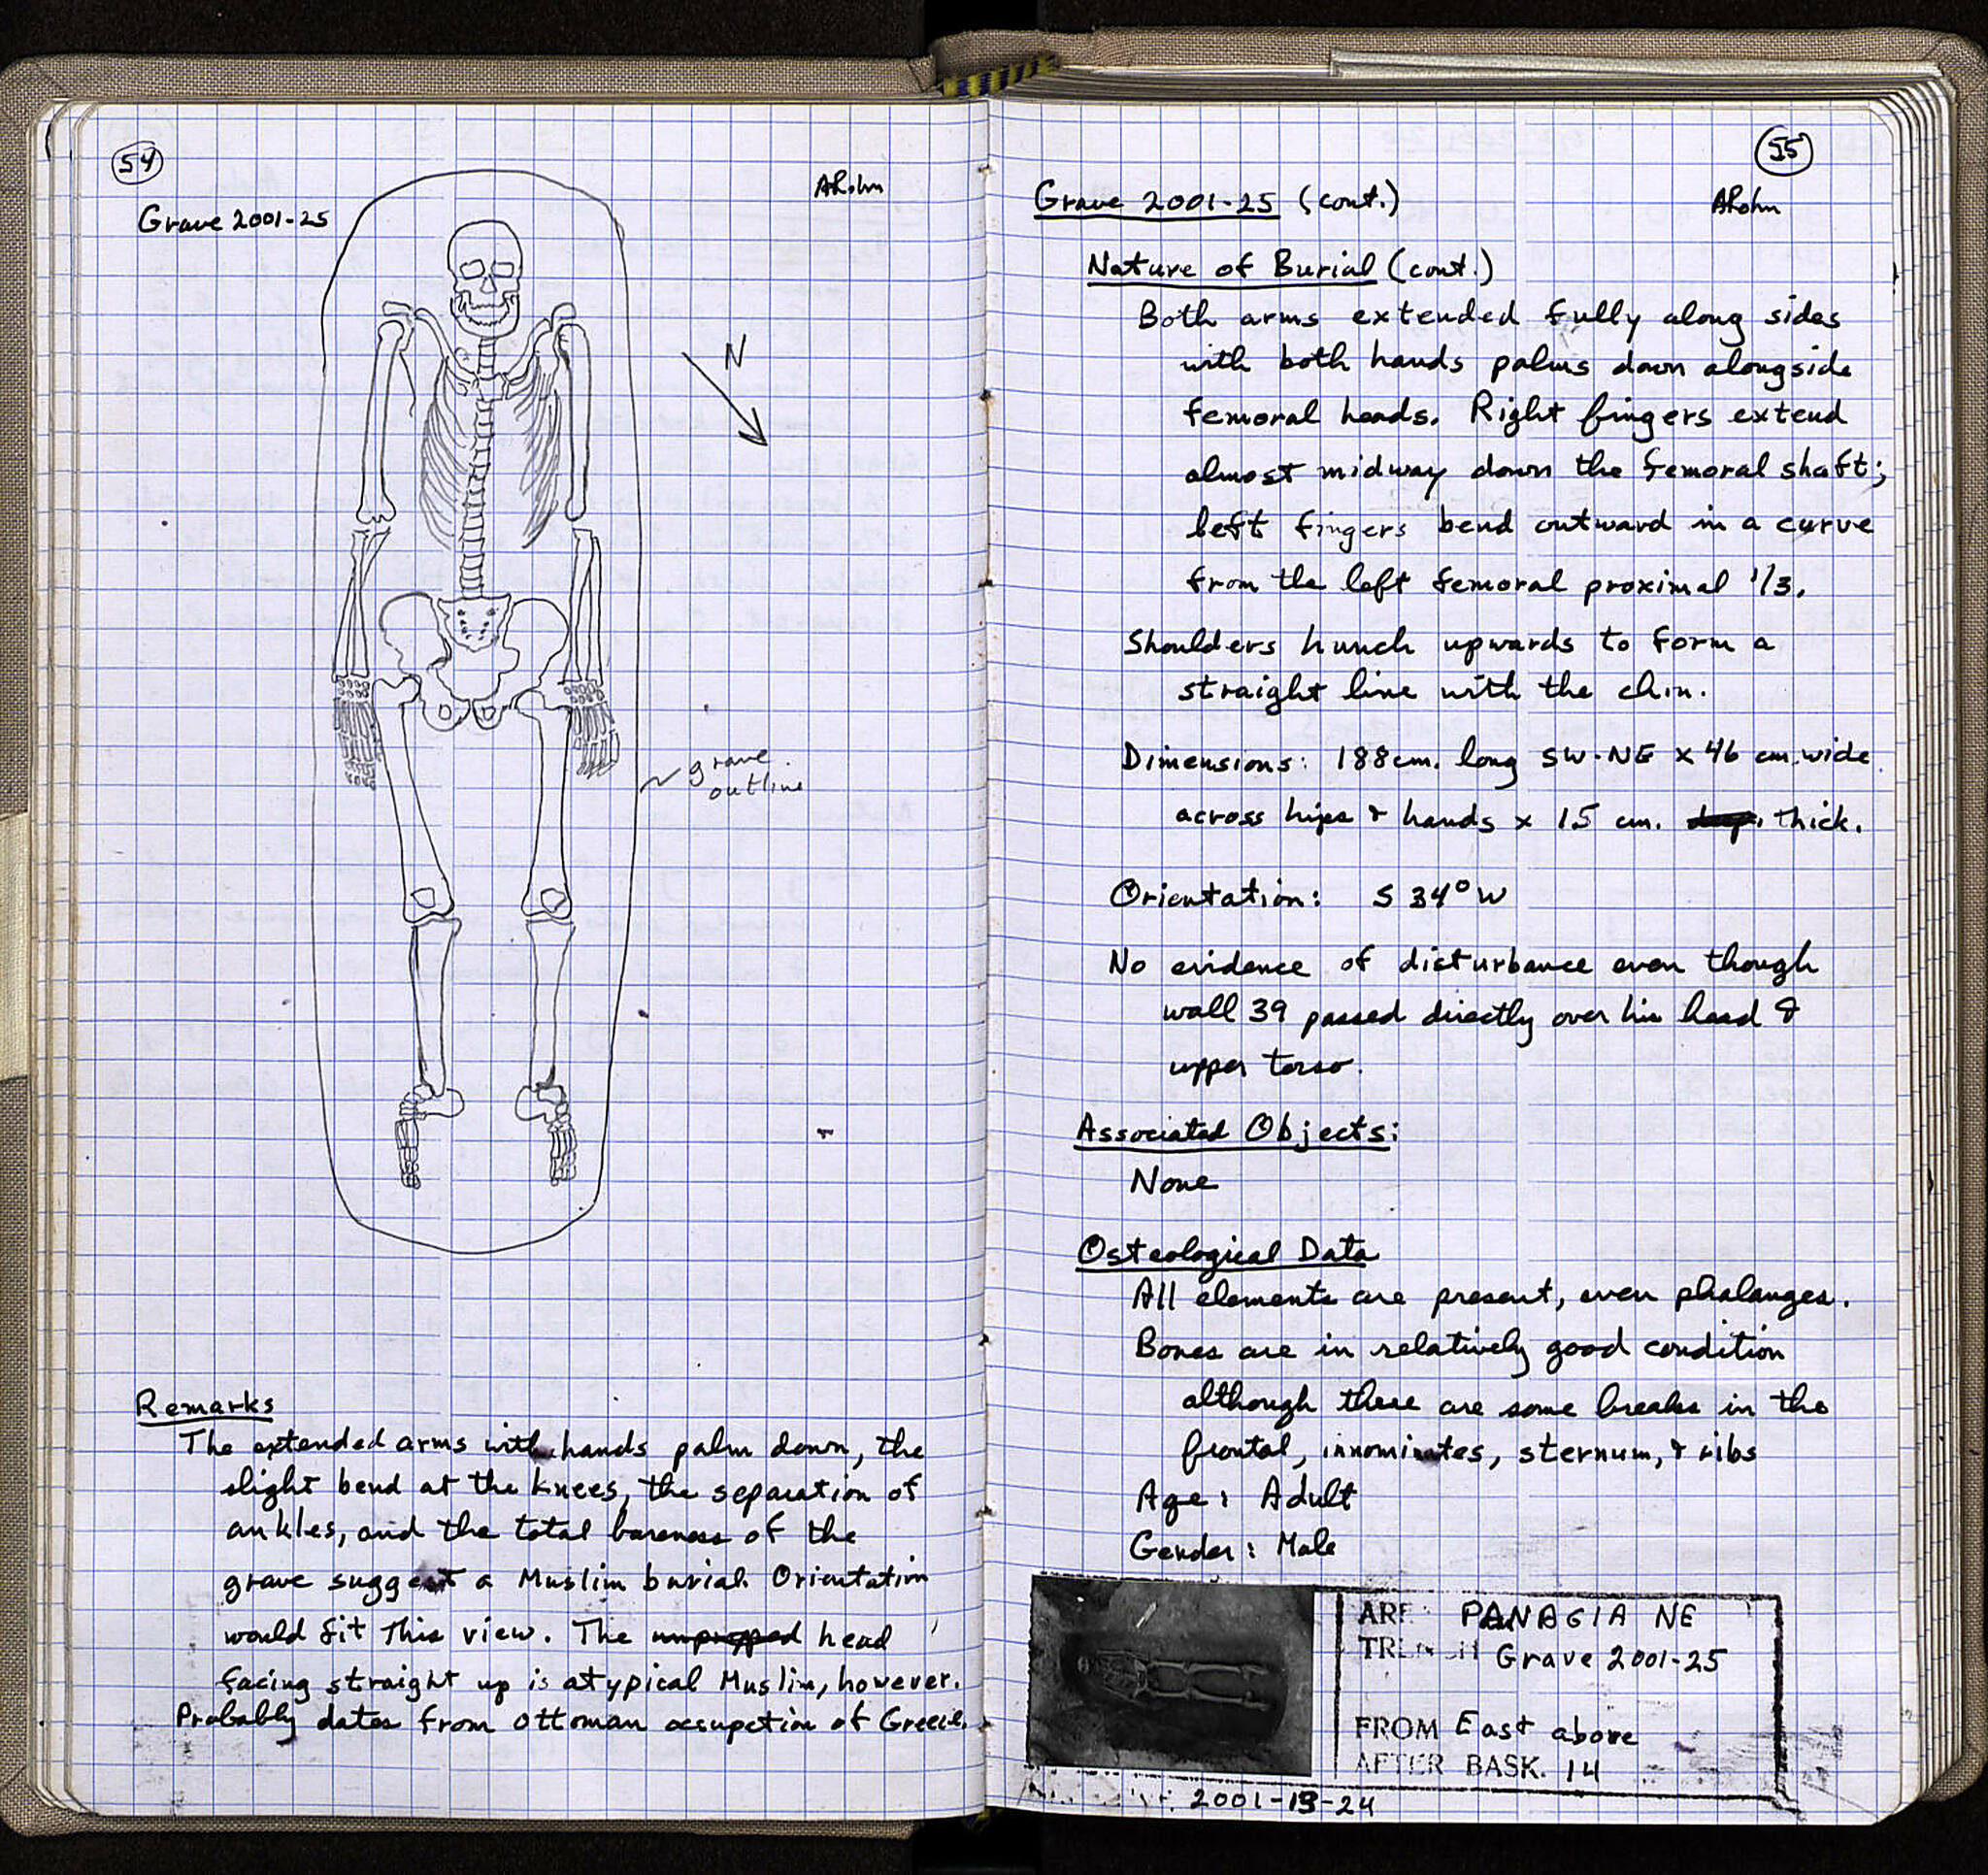 54
ARohn
Grave 2001-25
N
grave
outline
Remarks
The extended arms with hands palm down, the
slight bend at the knees, the separation of
ankles, and the total bareness of the
grave suggest a Muslim burial. Orientation
would fit this view. The unpropped head
facing straight up is atypical Muslim, however.
Probably dates from Ottoman occupation of Greece.
55
Grave 2001-25 (cont.)
ARohn
Nature of Burial (cont.)
Both arms extended fully along sides
with both hands palms down alongside
femoral heads. Right fingers extend
almost midway down the femoral shaft;
left fingers bend outward in a curve
from the left femoral proximal 1/3.
Shoulders hunch upwards to form a
straight line with the chin.
Dimensions: 188 cm. long SW-NE x 46 cm. wide
across hips & hands x 15 cm. deep. thick.
Orientation: S 34° W
No evidence of disturbance even though
wall 39 passed directly over his head &
upper torso.
Associated Objects:
None
Osteological Data
All elements are present, even phalanges.
Bones are in relatively good condition
although there are some breaks in the
frontal, innominates, sternum, & ribs
Age: Adult
Gender: Male
AREA PANAGIA NE
TRENCH Grave 2001-25
FROM East above
AFTER BASK. 14
2001-13-24